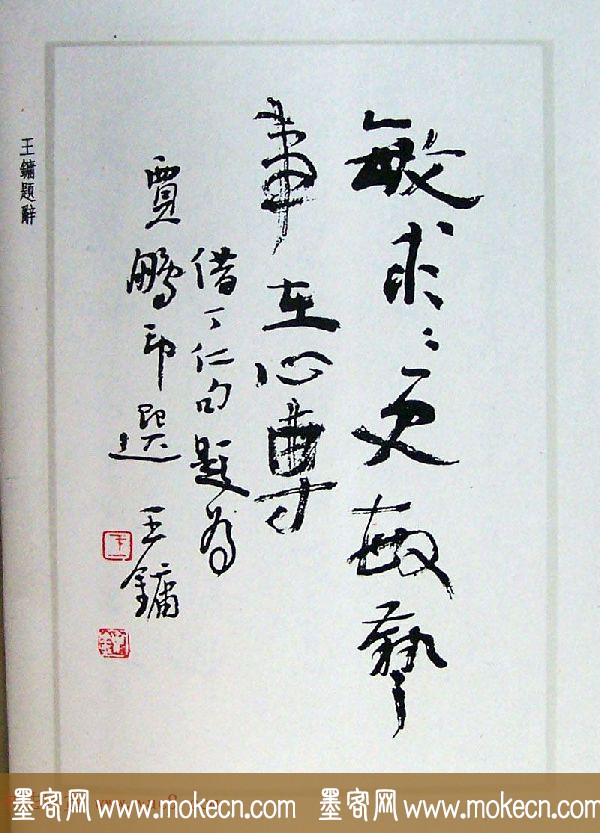 敏求〻更敏藝
事在心專
借丁仁句題為
賈鵬印選 王鏞
王
王鏞題辭
墨客网 www.mokecn.com 墨客网 www.mokecn.com